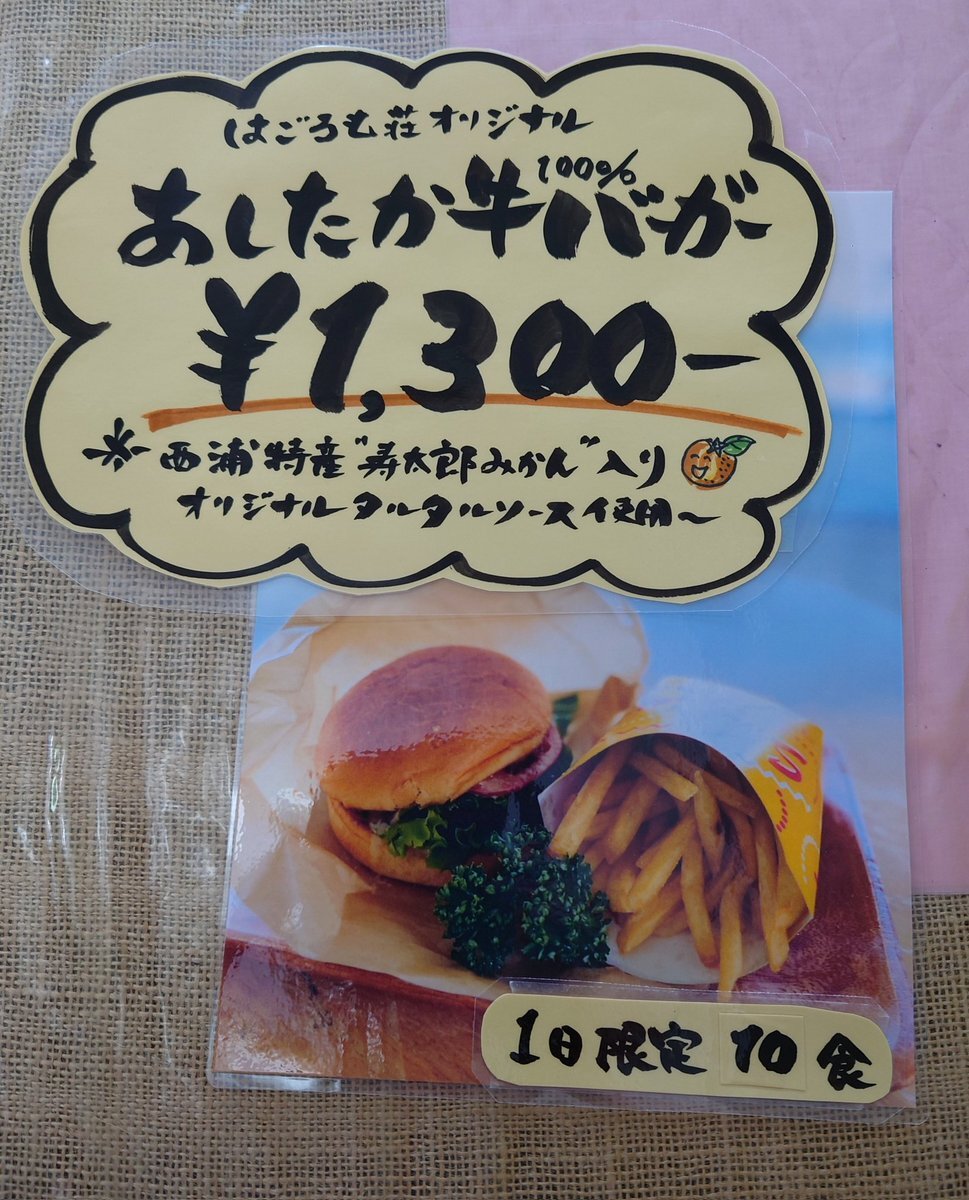 はごろも荘オリジナル
あしたか牛100%バーガー
¥1,300ー
※西浦特産"寿太郎みかん"入り
オリジナルタルタルソース使用～
1日限定10食